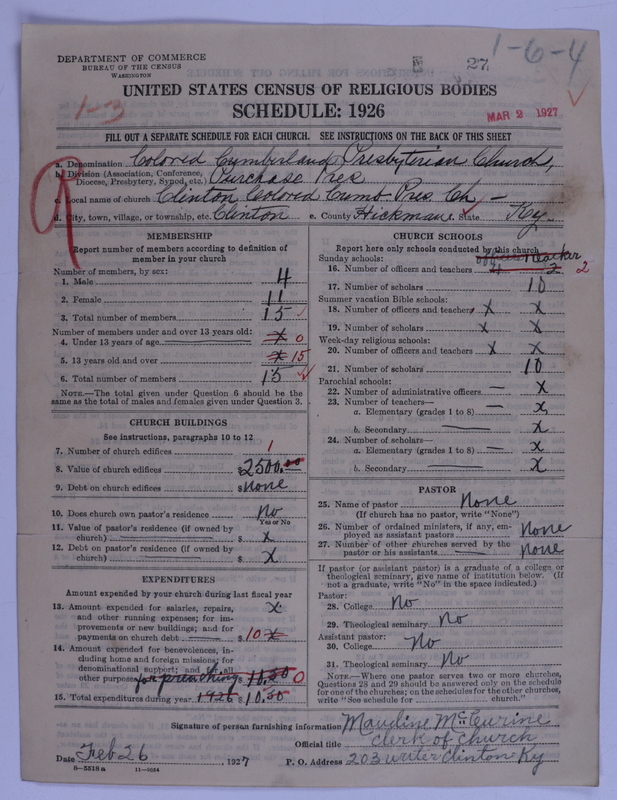 DEPARTMENT OF COMMERCE
BUREAU OF THE CENSUS
WASHINGTON
27
1-6-4
UNITED STATES CENSUS OF RELIGIOUS BODIES
SCHEDULE: 1926
1-3
MAR 2 1927
FILL OUT A SEPARATE SCHEDULE FOR EACH CHURCH. SEE INSTRUCTIONS ON THE BACK OF THIS SHEET
9
a. Denomination Colored Cumberland Presbyterian Church,
b. Division (Association, Conference,
Diocese, Presbytery, Synod, etc.) Purchase Pres
c. Local name of church Clinton Colored Cumb. Pres. Ch -
d. City, town, village, or township, etc. Clinton e. County Hickman State Ky.
MEMBERSHIP
Report number of members according to definition of
member in your church
Number of members, by sex:
1. Male 4
2. Female 11
3. Total number of members 15
Number of members under and over 13 years old:
4. Under 13 years of age x 0
5. 13 years old and over x 15
6. Total number of members 15
NOTE.—The total given under Question 6 should be
same as the total of males and females given under Question 3.
CHURCH BUILDINGS
See instructions, paragraphs 10 to 12
7. Number of church edifices 1
8. Value of church edifices $2500.00
9. Debt on church edifices $None
10. Does church own pastor's residence No
Yes or No
11. Value of pastor's residence (if owned by
church) $ x
12. Debt on pastor's residence (if owned by
church) $ x
EXPENDITURES
Amount expended by your church during last fiscal year
13. Amount expended for salaries, repairs, x
and other running expenses; for im-
provements or new buildings; and for
payments on church debt $ 10 x
14. Amount expended for benevolences, in-
cluding home and foreign missions; for
denominational support; and for all
other purposes for preaching 0
15. Total expenditures during year 1926 $ 10.50
CHURCH SCHOOLS
Report here only schools conducted by this church
Sunday schools: officer teacher
16. Number of officers and teachers 2 2
17. Number of scholars 10
Summer vacation Bible schools:
18. Number of officers and teachers x x
19. Number of scholars x x
Week-day religious schools:
20. Number of officers and teachers x x
21. Number of scholars 10
Parochial schools:
22. Number of administrative officers — x
23. Number of teachers—
a. Elementary (grades 1 to 8) — x
b. Secondary x
24. Number of scholars—
a. Elementary (grades 1 to 8) — x
b. Secondary x
PASTOR
25. Name of pastor None
(If church has no pastor, write "None")
26. Number of ordained ministers, if any, em-
ployed as assistant pastors None
27. Number of other churches served by the
pastor or his assistants None
If pastor (or assistant pastor) is a graduate of a college or
theological seminary, give name of institution below. (If
not a graduate, write "No" in the space indicated.)
Pastor:
28. College No
29. Theological seminary No
Assistant pastor:
30. College No
31. Theological seminary No
NOTE.—Where one pastor serves two or more churches,
Questions 28 and 29 should be answered only on the schedule
for one of the churches; on the schedules for the other churches,
write "See schedule for ........ church."
Signature of person furnishing information Maudine McCurine
Official title Clerk of Church
Date Feb 26, 1927 P. O. Address 203 Clinton Ky
8—5518a 11—9034